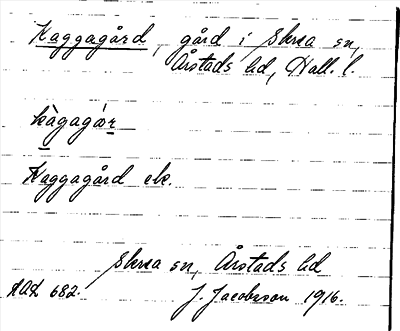 Kaggagård, gård i Skrea sn,
Årstads hd, Hall. l.
kàgagár
Kaggagård ek.
Skrea sn, Årstads hd
AAL 682. J. Jacobsson 1916.